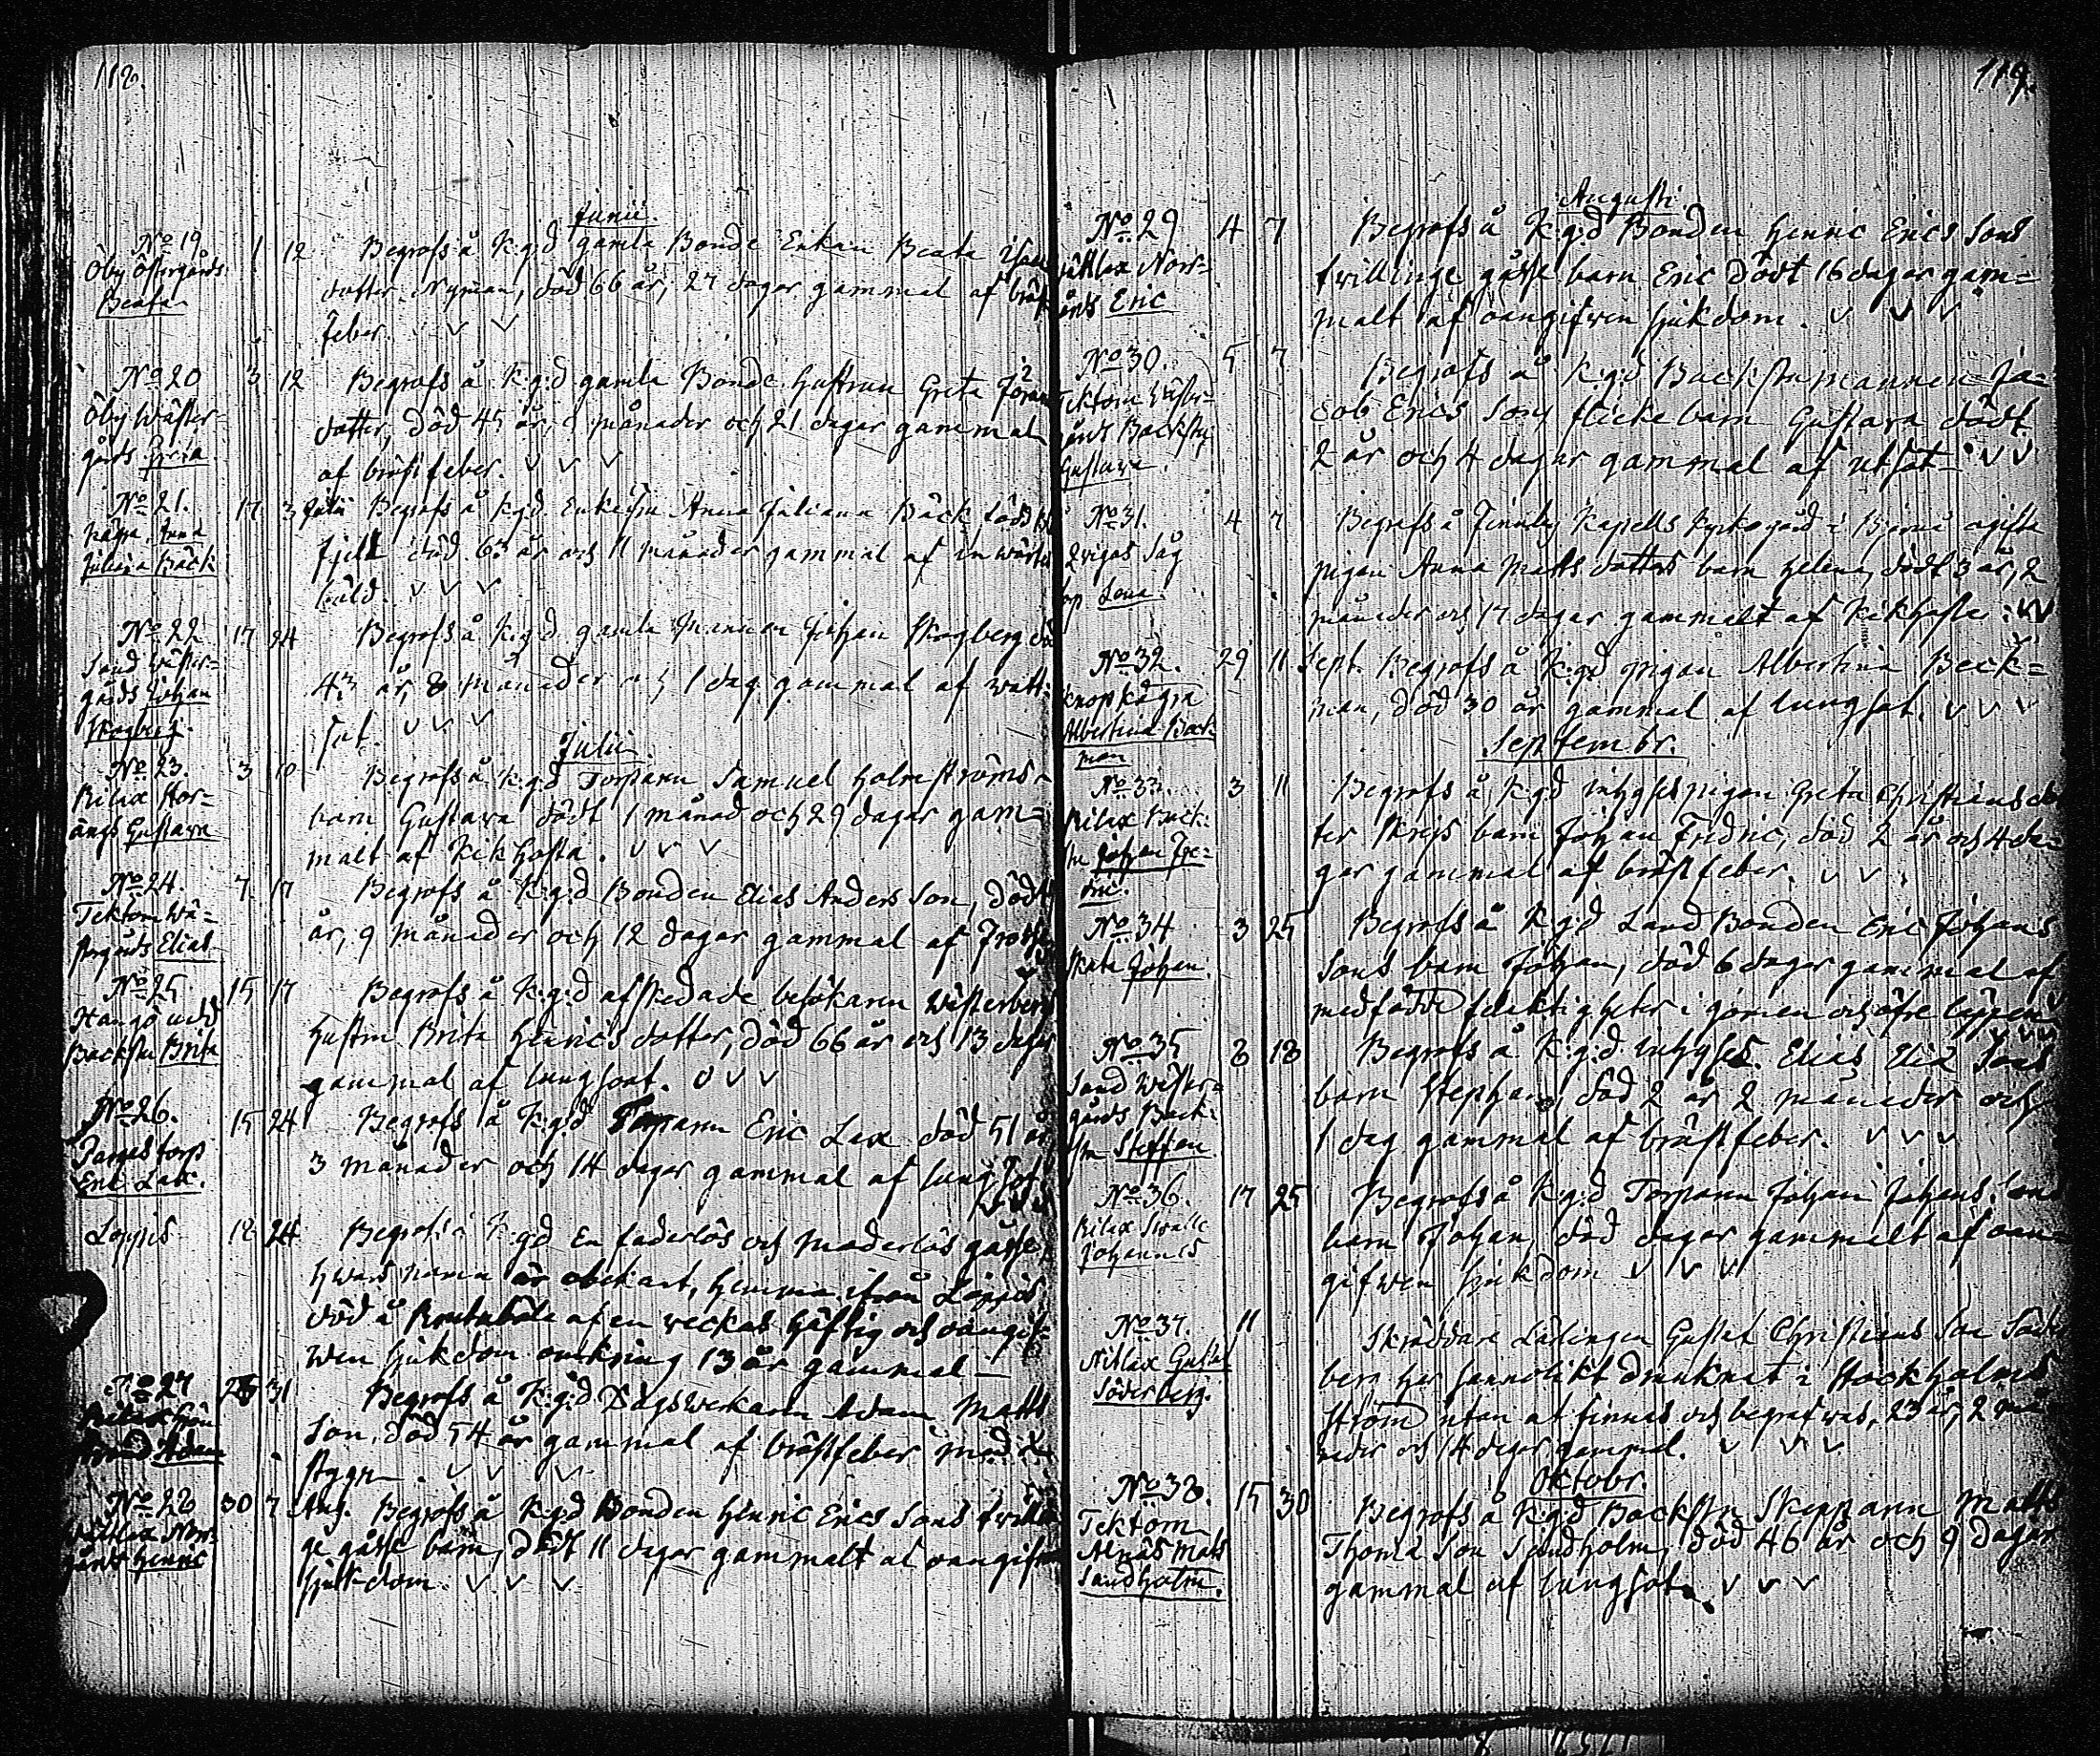 118.
Junii.
No 19.
Öby Östergårds
Beata
1 12 Begrofs å K:g:d gamla Bonde Enkan Beata
dotter Nyman, död 66 år, 27 dagar gammal af bröst
feber.
No 20
Öby Wäster-
gårds Greta
3 12 Begrofs å K:g:d gamla Bonde Hustrun Greta Johans
dotter, död 45 år, månader och 21 dagar gammal
af bröstfeber.
No 21.
Anna
Juliana Bäck
17 3 Julii Begrofs å K:g:d Anna Juliana Bäck född
död 63 år och 11 månader gammal af inwärtes
No 22
Sand Wäster-
gårds Johan
Skogberg.
17 24 Begrofs å K:g:d gamla Mannen Johan Skogberg död
43 år, 8 månader och 1 dag gammal af watt-
sot.
Julii
No 23.
Rilax Stor-
ängs Gustava
3 10 Begrofs å K:g:d Torparn Samuel Holmströms
barn Gustava dödt 1 månad och 29 dagar gam-
malt af Kikhosta.
No 24.
Tektom Wä-
stergårds Elias
7 17 Begrofs å K:g:d Bonden Elias Anders Son, död
år, 9 månader och 12 dagar gammal af
No 25
Hangö udd
Backstu Brita
15 17 Begrofs å K:g:d afskedade besökaren Wästerbergs
hustru Brita Henrics dotter, död 66 år och 13 dagar
gammal af lungsoat.
No 26.
Eric Lax.
15 24 Begrofs å K:g:d Torparn Eric Lax död 51 år
3 månader och 14 dagar gammal af lungsot
Loppis
18 24 Begrofs å K:g:d En faderlös och moderlös gåsse,
hwars namn är obekant, hemma ifrån Loppis
död å af en veckas häftig och oangif-
wen sjukdom omkring 13 år gammal
No 27
Rilax
Adam
26 31 Begrofs å K:g:d Dagswerkarn Adam Matts
Son, död 54 år gammal af bröstfeber med
stygn.
No 28
Nor-
gårds Henric
30 7 Aug. Begrofs å K:g:d Bonden Henric Erics Sons twillin
ge gåsse barn, dödt 11 dagar gammalt af oangifwen
sjukdom.
119.
Augusti.
No 29
Norr-
gårds Eric
4 7 Begrofs å K:g:d Bonden Henric Erics Sons
twillinge gåsse barn Eric dödt 16 dagar gam-
malt af oangifwen sjukdom.
No 30.
Tektom Wäster-
gårds Backstu
Gustava.
5 7 Begrofs å K:g:d Backstumannen Ja-
cob Erics Sons flicke barn Gustava dödt
2 år och 4 dagar gammal af utsot
No 31.
Lena
4 7 Begrofs å Finnby Kapells kyrkogård i Bjerno ogifta
pigan Anna Matts dotters barn Helena, dödt 3 år, 2
månader och 17 dagar gammalt af Kikhosta
No 32.
Albertina Beck-
man
29 11 Sept. Begrofs å K:g:d pigan Albertina Beck-
man, död 30 år gammal af lungsot.
Septembr.
No 33.
Rilax Back-
stu Johan Fre-
dric.
3 11 Begrofs å K:g:d inhyses pigan Greta Christians dot
ter barn Johan Fredric, död 2 år och 4 da-
gar gammal af bröstfeber.
No 34
Skata Johan.
3 25 Begrofs å K:g:d Land Bonden Eric Johans
Sons barn Johan, död 6 dagar gammal af
medfödde felaktigheter i gomen och öfre läppen
No 35
Sand Wäster-
gårds Back-
stu Steffan
8 18 Begrofs å K:g:d inhyses Elias Eliæ Sons
barn Stephan, död 2 år 2 månader och
1 dag gammal af bröstfeber.
No 36.
Rilax
Johannes
17 25 Begrofs å K:g:d Torparn Johan Johans Sons
barn Johan, död dagar gammalt af oan-
gifwen sjukdom
No 37.
Nitlax Gustaf
Söderberg.
11 Skräddare Lärlingen Gustaf Christians Son Söder
berg har sannolikt druknat i Stockholms
ström utan at finnas och begrafwas, 23 år, 2 må-
nader och 14 dagar gammal.
Oktobr.
No 38.
Tektom
Alnäs Mats
Sandholm.
15 30 Begrofs å K:g:d Backstu Skepparn Matts
Thomæ Son Sandholm, död 46 år och 9 dagar
gammal af lungsot.